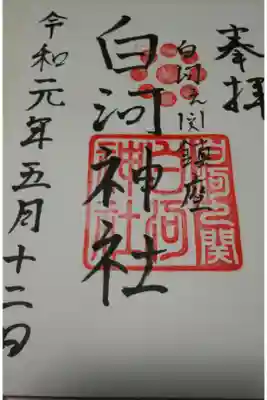 奉拝
白河之関鎮座
白河神社
令和元年五月十二日
白河之関
白河神社